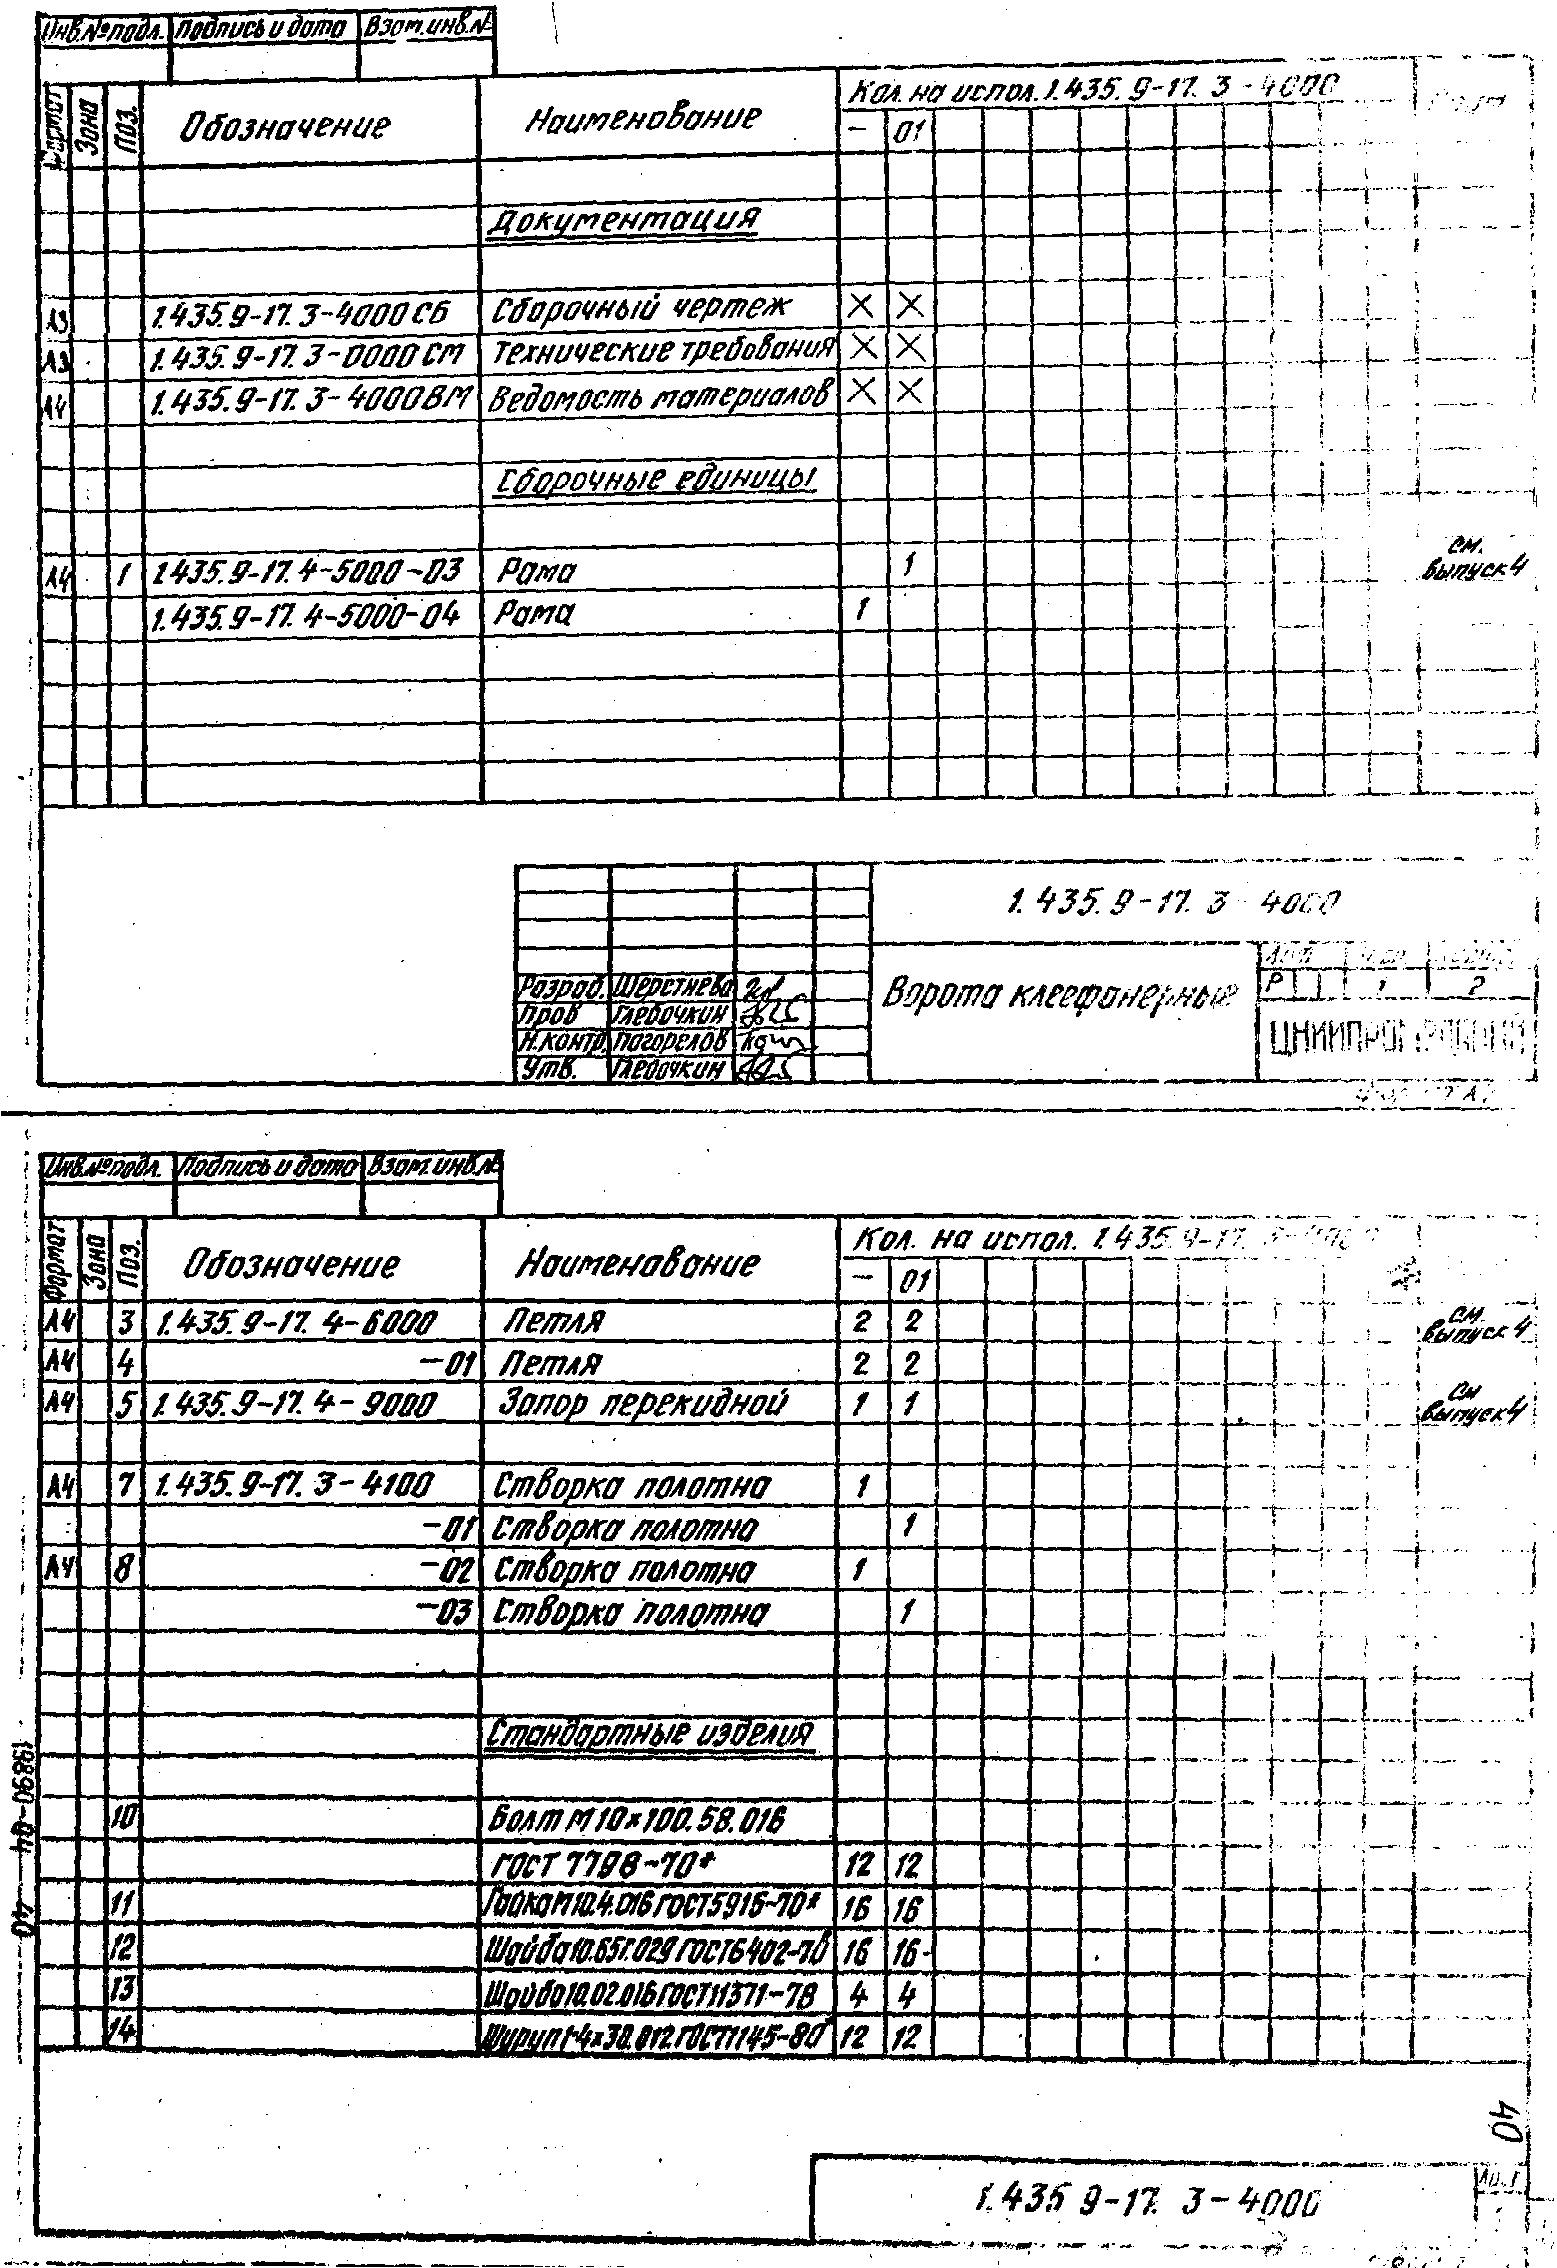 Инв.№подл. Подпись и дата Взам.инв.№
Формат Зона Поз. Обозначение Наименование Кол. на испол. 1.435.9-17.3-4000
— 01
Документация
А3 1.435.9-17.3-4000СБ Сборочный чертеж × ×
А3 1.435.9-17.3-0000СМ Технические требования × ×
А4 1.435.9-17.3-4000ВМ Ведомость материалов × ×
Сборочные единицы
А4 1 1.435.9-17.4-5000-03 Рама 1 см. выпуск 4
1.435.9-17.4-5000-04 Рама 1
1.435.9-17.3-4000
Разраб. Шерстнева
Пров Глебочкин
Н.контр. Погорелов
Утв. Глебочкин
Ворота клеефанерные
Р 1 2
Инв.№подл. Подпись и дата Взам.инв.№
Формат Зона Поз. Обозначение Наименование Кол. на испол. 1.435.9-17.3-4000
— 01
А4 3 1.435.9-17.4-6000 Петля 2 2 см. выпуск 4
А4 4 -01 Петля 2 2
А4 5 1.435.9-17.4-9000 Запор перекидной 1 1 см выпуск 4
А4 7 1.435.9-17.3-4100 Створка полотна 1
-01 Створка полотна 1
А4 8 -02 Створка полотна 1
-03 Створка полотна 1
Стандартные изделия
10 Болт М10×100.58.016
ГОСТ 7798-70* 12 12
11 Гайка М10.4.016 ГОСТ 5915-70* 16 16
12 Шайба 10.65Г.029 ГОСТ 6402-70 16 16
13 Шайба 10.02.016 ГОСТ 11371-78 4 4
14 Шуруп 1-4×30.012 ГОСТ 1145-80 12 12
19890-04 40
40
1.435.9-17.3-4000